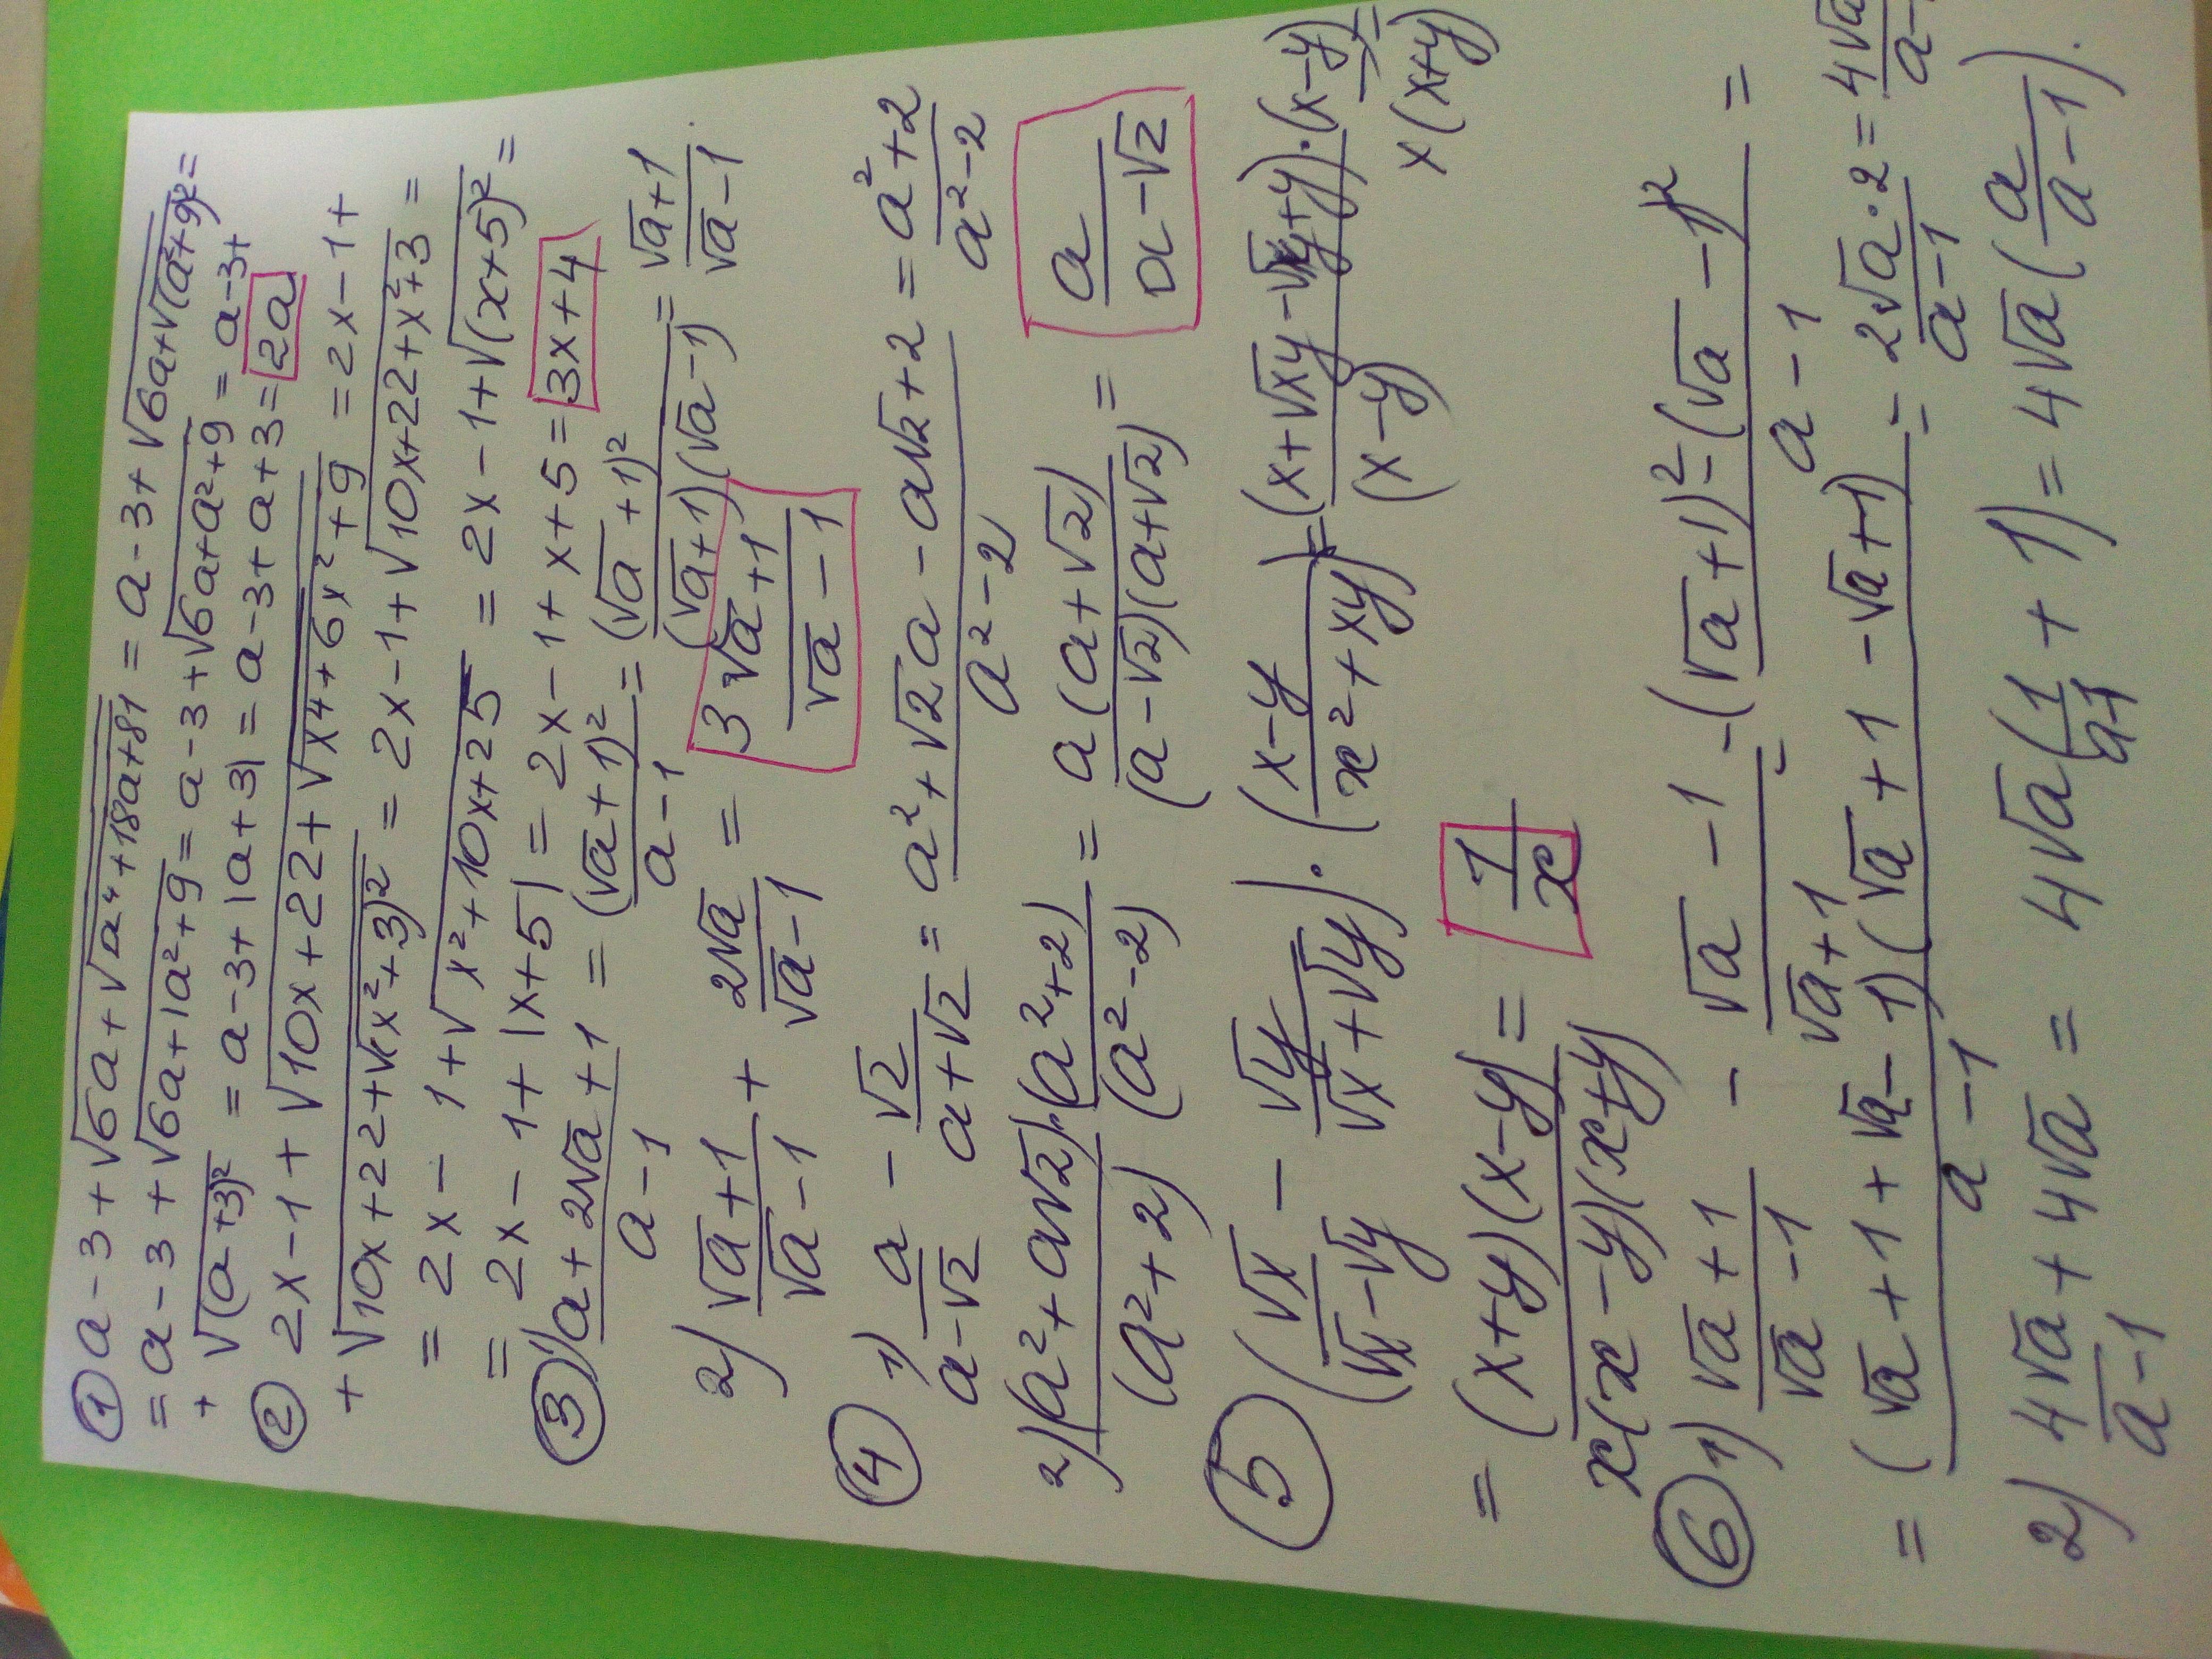 ① a-3+√(6a+√(a⁴+18a+81)) = a-3+√(6a+√((a²+9)²)) =
= a-3+√(6a+|a²+9|) = a-3+√(6a+a²+9) = a-3+
+ √((a+3)²) = a-3+|a+3| = a-3+a+3 = 2a
② 2x-1+√(10x+22+√(x⁴+6x²+9)) = 2x-1+
+ √(10x+22+√((x²+3)²)) = 2x-1+√(10x+22+x²+3) =
= 2x-1+√(x²+10x+25) = 2x-1+√((x+5)²) =
= 2x-1+|x+5| = 2x-1+x+5 = 3x+4
③ 1) (a+2√a+1)/(a-1) = (√a+1)²/(a-1) = (√a+1)²/((√a+1)(√a-1)) = (√a+1)/(√a-1).
2) (√a+1)/(√a-1) + 2√a/(√a-1) = (3√a+1)/(√a-1)
④ 1) a/(a-√2) - √2/(a+√2) = (a²+√2a-a√2+2)/(a²-2) = (a²+2)/(a²-2)
2) (a²+a√2)·(a²+2)/((a²+2)(a²-2)) = a(a+√2)/((a-√2)(a+√2)) = a/(a-√2)
⑤ (√x/(√x-√y) - √y/(√x+√y))·((x-y)/(x²+xy)) = (x+√xy-√xy+y)·(x-y)/((x-y) x(x+y)) =
= (x+y)(x-y)/(x(x-y)(x+y)) = 1/x
⑥ 1) (√a+1)/(√a-1) - (√a-1)/(√a+1) = ((√a+1)²-(√a-1)²)/(a-1) =
= (√a+1+√a-1)(√a+1-√a+1)/(a-1) = 2√a·2/(a-1) = 4√a/(a-
2) 4√a/(a-1) + 4√a = 4√a(1/(a-1)+1) = 4√a(a/(a-1)).